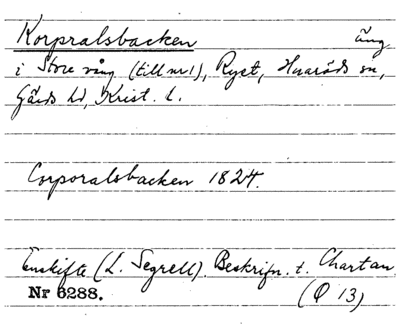 Korpralsbacken äng
i Store vång (till nr 1), Ryet, Huaröds sn,
Gärds hd, Krist. l.
Corporalsbacken 1824.
Enskifte (L. Segrell). Beskrifn. t. Chartan
Nr 6288. (Q 13)